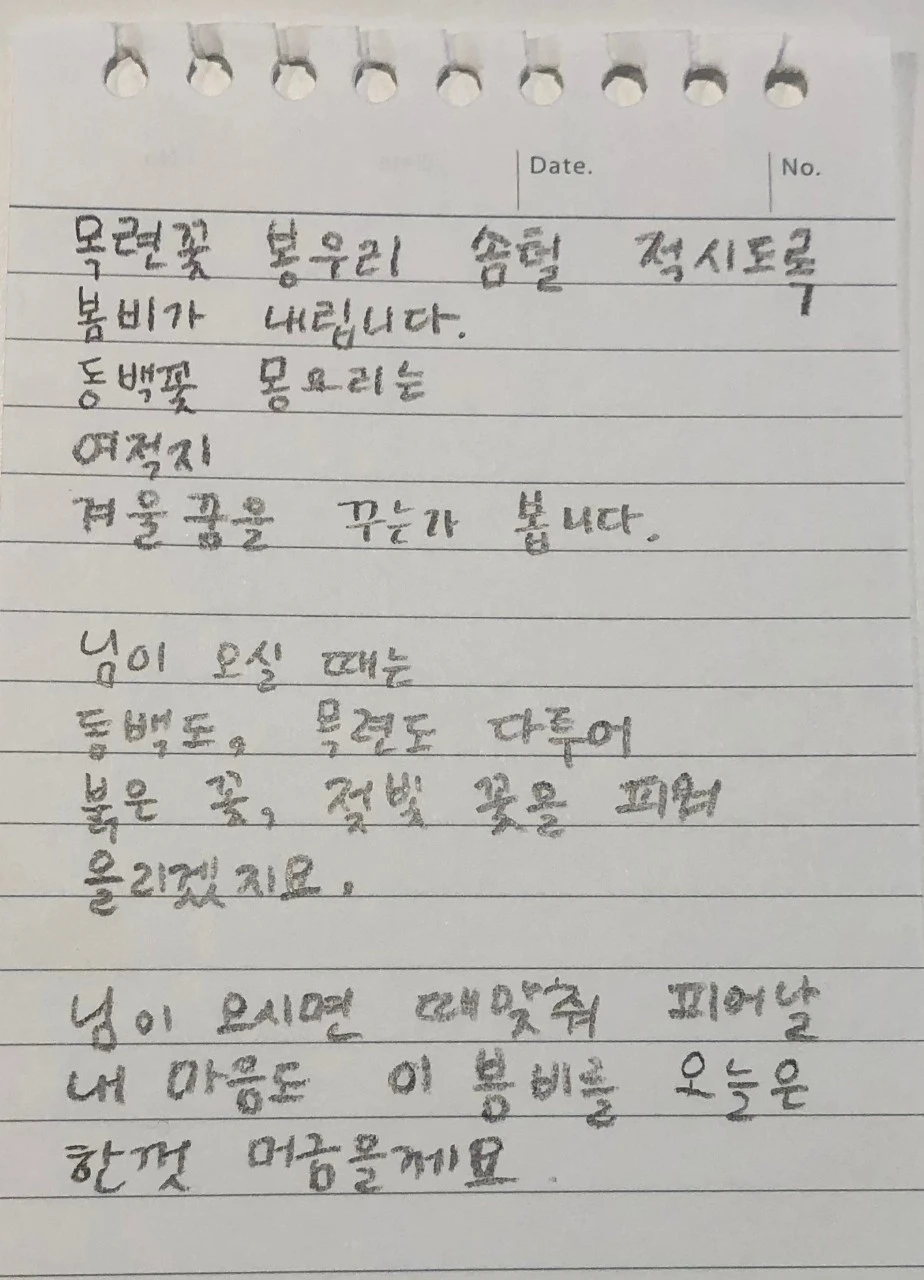 Date.
No.
목련꽃 봉우리 솜털 적시도록
봄비가 내립니다.
동백꽃 몽오리는
여적지
겨울꿈을 꾸는가 봅니다.
님이 오실 때는
동백도, 목련도 다투어
붉은 꽃, 젖빛 꽃을 피워
올리겠지요.
님이 오시면 때맞춰 피어날
내 마음도 이 봄비를 오늘은
한껏 머금을께요.